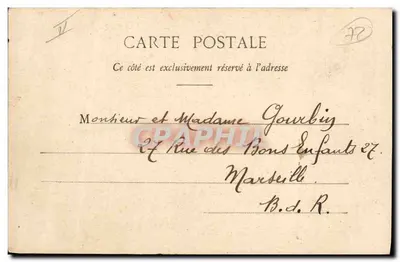 V
72
CARTE POSTALE
Ce côté est exclusivement réservé à l'adresse
Monsieur et Madame Gourbin
27 Rue des Bons Enfants 27.
Marseille.
B. d. R.
CRAPHTI